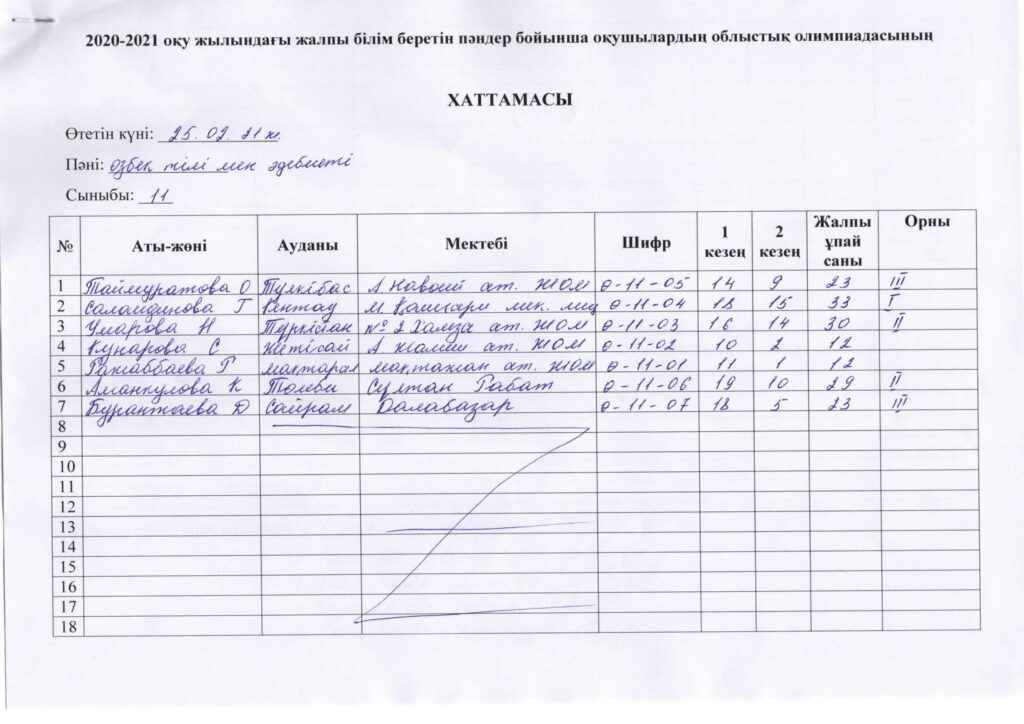 2020-2021 оқу жылындағы жалпы білім беретін пәндер бойынша оқушылардың облыстық олимпиадасының
ХАТТАМАСЫ
Өтетін күні: 25. 02. 21 ж.
Пәні: өзбек тілі мен әдебиеті
Сыныбы: 11
№ Аты-жөні Ауданы Мектебі Шифр 1 кезең 2 кезең Жалпы ұпай саны Орны
1 Таймуратова О Түлкібас А. Навоий ат. ЖОМ Ө-11-05 14 9 23 III
2 Салайдинова Г Кентау М. Қашғари мек. лиц Ө-11-04 18 15 33 I
3 Умарова Н Туркістан №2 Хамза ат. ЖОМ Ө-11-03 16 14 30 II
4 С Жетісай А. ат. ЖОМ Ө-11-02 10 2 12
5 Ражаббаева Г Мақтарал ат. ЖОМ Ө-11-01 11 1 12
6 Аманкулова К Толеби Султан Рабат Ө-11-06 19 10 29 II
7 Бурантаева Д Сайрам Далабазар Ө-11-07 18 5 23 III
8
9
10
11
12
13
14
15
16
17
18